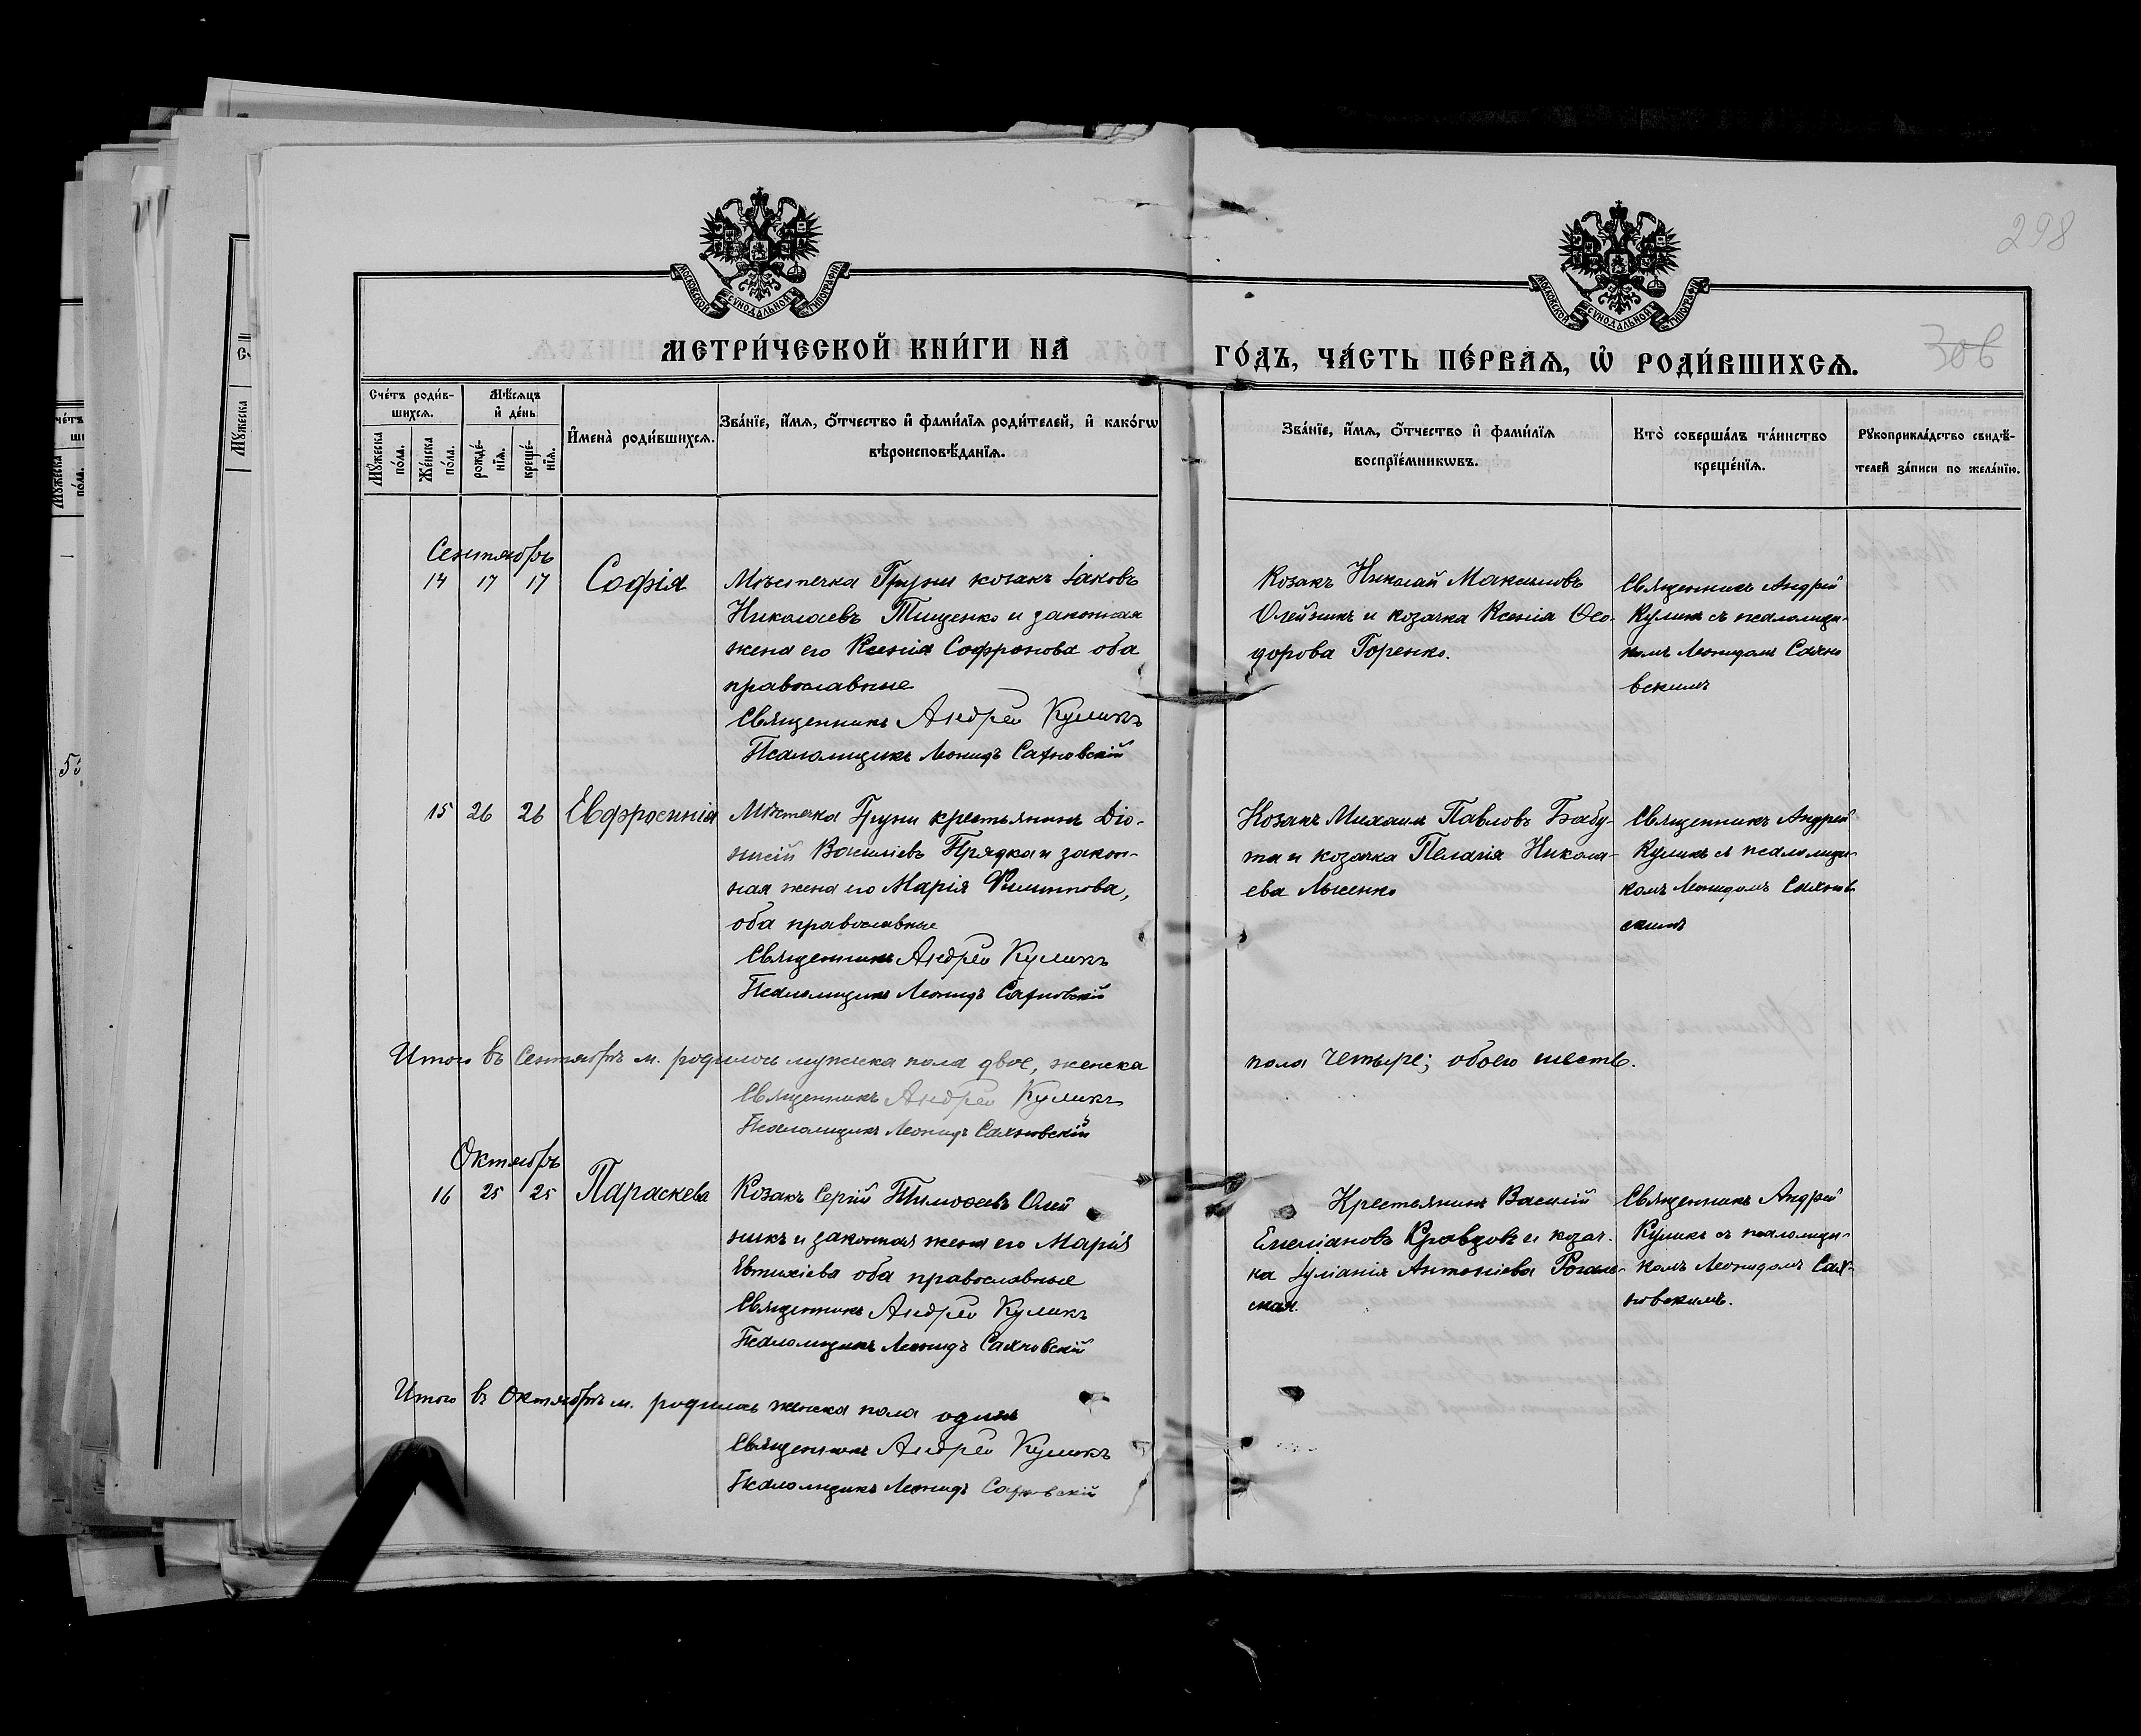 298
306
МОСКОВСКОЙ СѴНОДАЛЬНОЙ ТИПОГРАФІИ
МОСКОВСКОЙ СѴНОДАЛЬНОЙ ТИПОГРАФІИ
МЕТРИ́ЧЕСКОЙ КНИ́ГИ НА
ГО́ДЪ, ЧА́СТЬ ПЕ́РВАѦ, Ѡ҆ РОДИ́ВШИХСѦ.
Сче́тъ роди́в-
шихся.
Мѣ́сяцъ
и҆ де́нь
Мꙋ́жеска
по́ла.
Же́нска
по́ла.
рожде́-
нїя.
креще́-
нїя.
И҆мена̀ роди́вшихся.
Зва́нїе, и҆́мя, ѻ҆́тчество и҆ фами́лїя роди́телей, и҆ како́гѡ
вѣроисповѣ́данїя.
Зва́нїе, и҆́мя, ѻ҆́тчество и҆ фами́лїя
воспрїе́мникѡвъ.
Кто̀ соверша́лъ та́инство
креще́нїя.
Рꙋкоприкла́дство свидѣ́-
телей за́писи по жела́нїю.
Сентябрь
14 17 17 Софія
Мѣстечка Груни козакъ Іаковъ
Николаевъ Тищенко и законная
жена его Ксенія Софронова оба
православные
Священникъ Андрей Куликъ
Псаломщикъ Леонидъ Сахновскій
Козакъ Николай Максимовъ
Олейникъ и козачка Ксенія Ѳео-
дорова Горенко.
Священникъ Андрей
Куликъ съ псаломщи-
комъ Леонидомъ Сахно
вскимъ
15 26 26 Евфросинія
Мѣстечка Груни крестьянинъ Діо-
нисій Васильевъ Прядка и закон-
ная жена его Марія Филиппова,
оба православные
Священникъ Андрей Куликъ
Псаломщикъ Леонидъ Сахновскій
Козакъ Михаилъ Павловъ Бабу-
та и козачка Пелагія Никола-
ева Лысенко
Священникъ Андрей
Куликъ съ псаломщи-
комъ Леонидомъ Сахнов
скимъ
Итого въ Сентябрѣ м. родилось мужеска пола двое, женска
пола четыре; обоего шесть.
Священникъ Андрей Куликъ
Псаломщикъ Леонидъ Сахновскій
Октябрь
16 25 25 Параскева
Козакъ Сергій Тимоѳеевъ Олей
никъ и законная жена его Марія
Евтихіева оба православные
Священникъ Андрей Куликъ
Псаломщикъ Леонидъ Сахновскій
Крестьянинъ Василій
Емеліановъ Кравцовъ и козач-
ка Іуліанія Антоніева Рогаль-
ская.
Священникъ Андрей
Куликъ съ псаломщи-
комъ Леонидомъ Сах-
новскимъ.
Итого въ Октябрѣ м. родилось женска пола одинъ
Священникъ Андрей Куликъ
Псаломщикъ Леонидъ Сахновскій